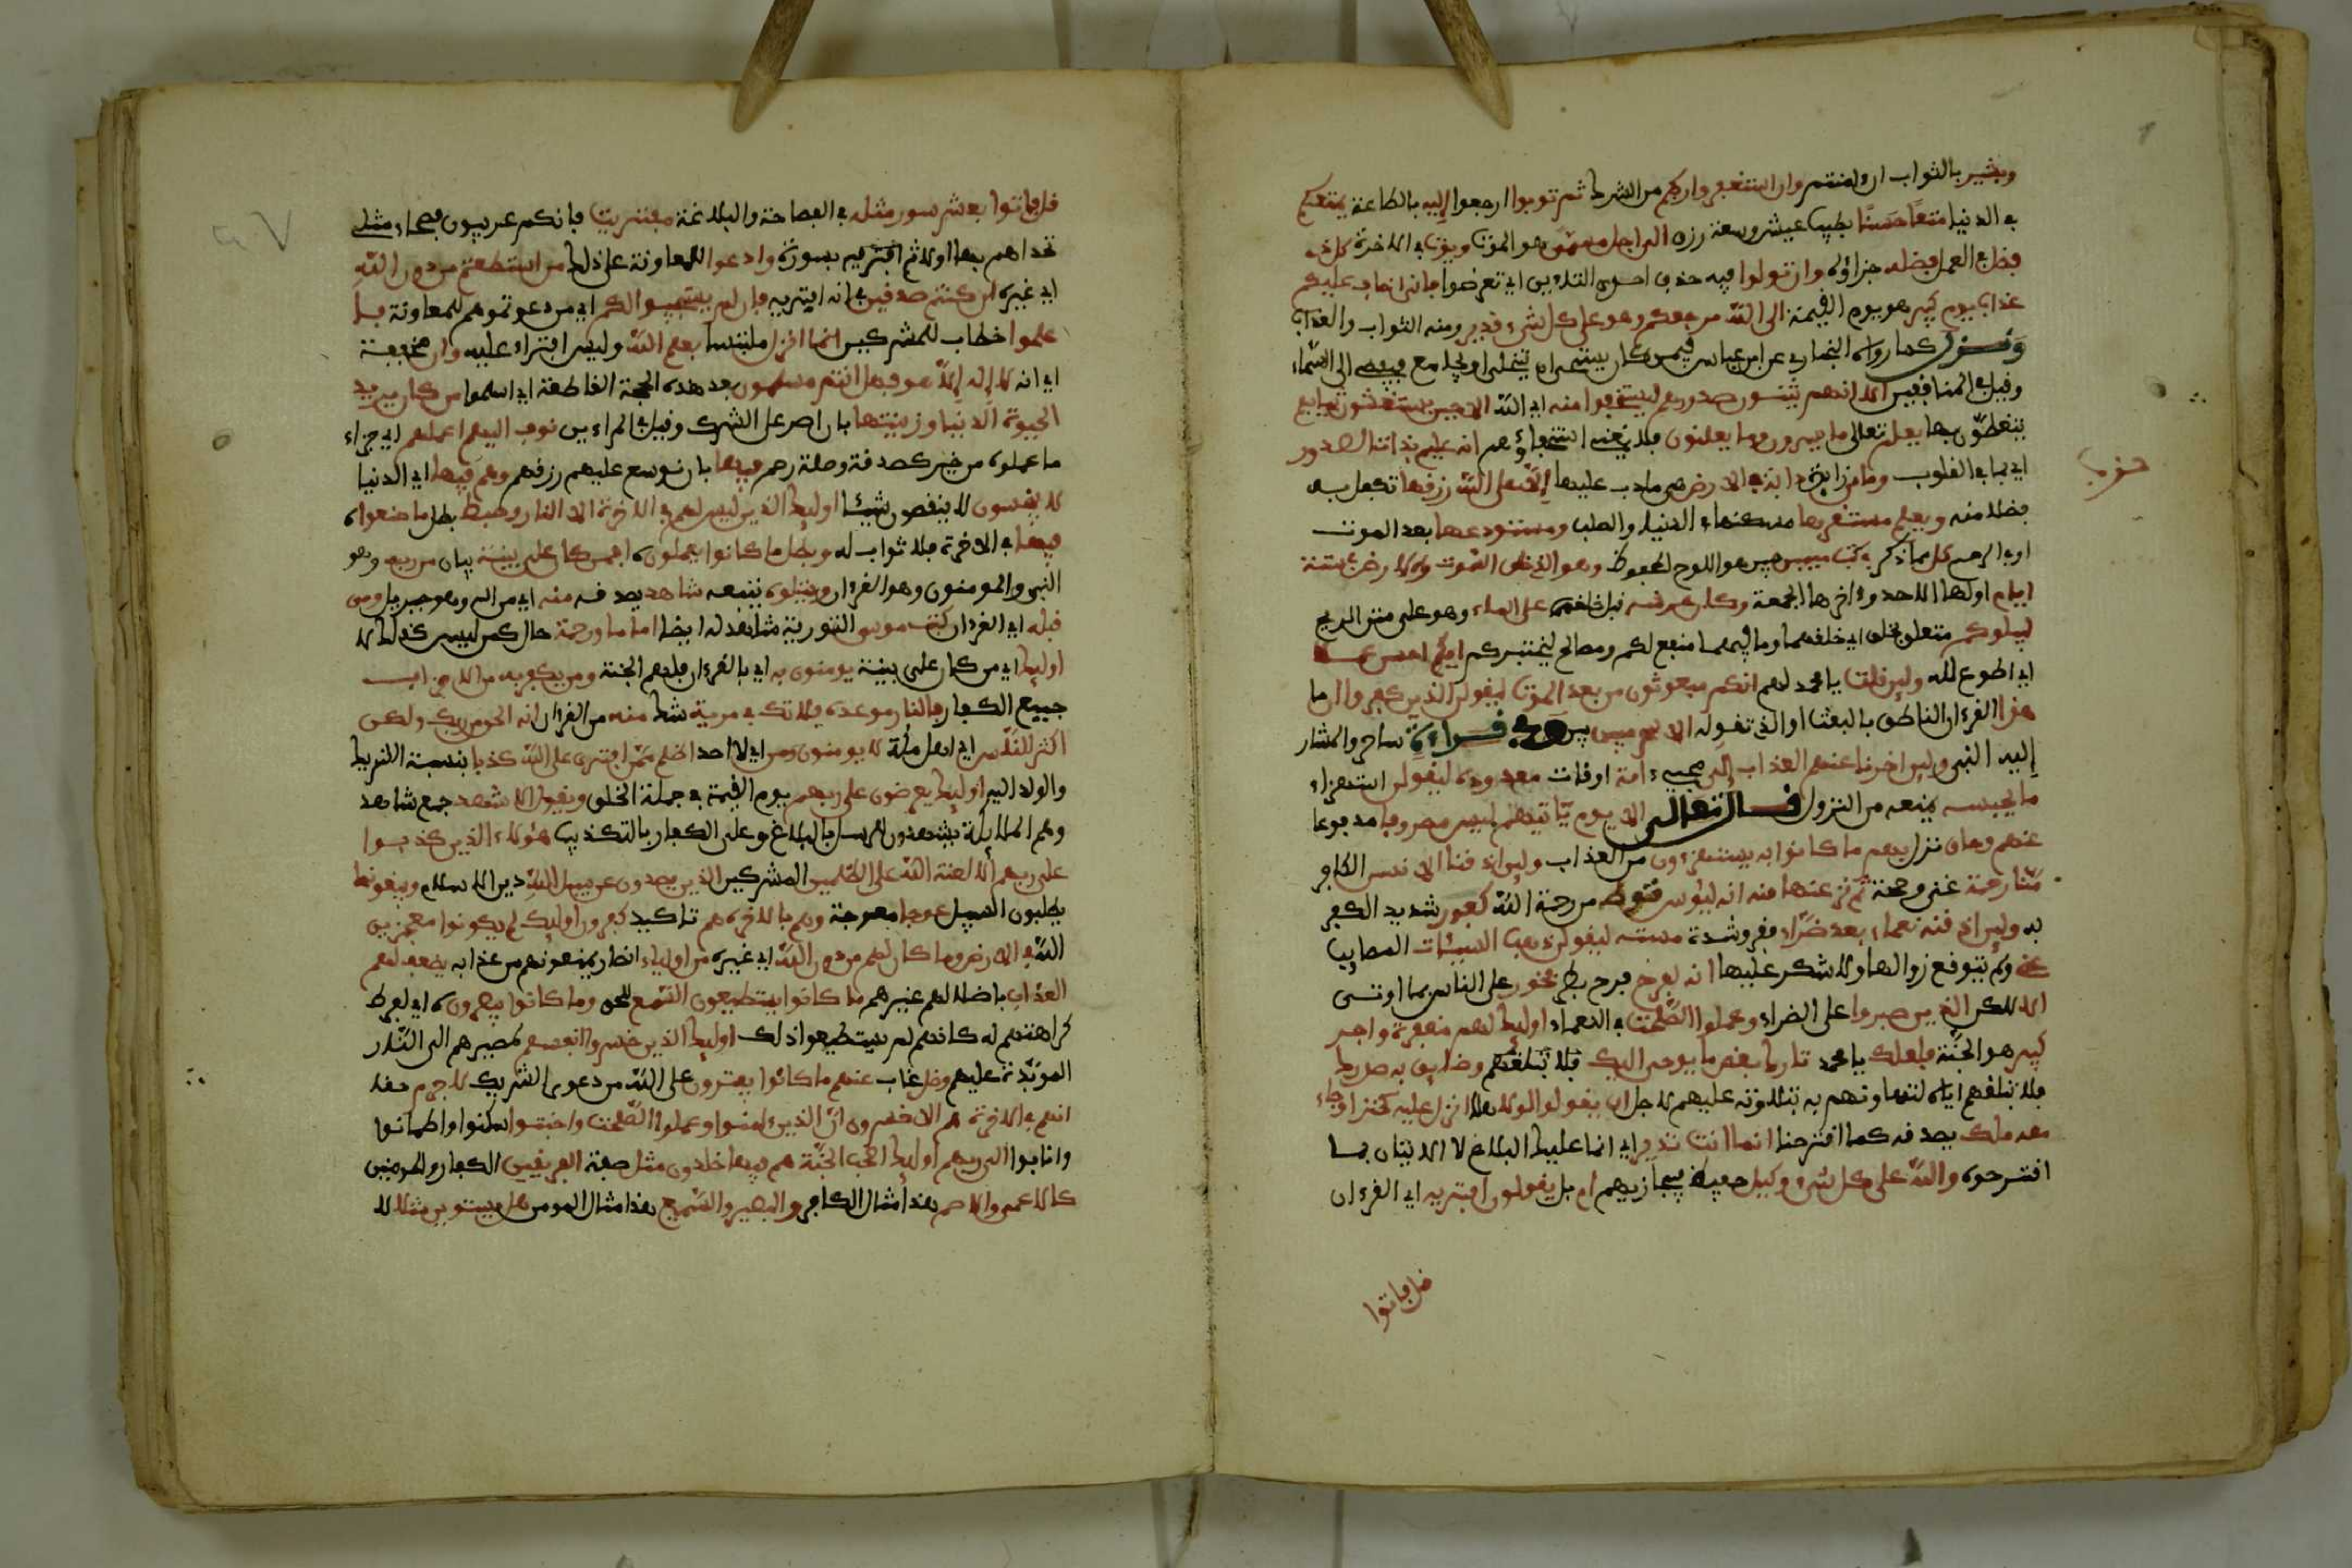 وبشير بالثواب ان ءامنتم وان استغفروا ربكم من الشرك ثم توبوا ارجعوا إليه بالطاعة يمتعكم
في الدنيا متعًا حسنًا بطيب عيش وسعة رزق الى اجل مسمى هو الموت ويؤت في الاخرة كل ذي
فضل في العمل فضله جزاؤه وان تولوا فيه حذف احدى التاءين اي تعرضوا فاني اخاف عليكم
عذاب يوم كبير هو يوم القيمة الى الله مرجعكم وهو على كل شيء قدير ومنه الثواب والعذاب
ونزل كما رواه البخاري عن ابن عباس فيمن كان يستحي ان يتخلى او يجامع فيفضي الى السماء
وقيل في المنافقين الا انهم يثنون صدورهم ليستخفوا منه اي الله الا حين يستغشون ثيابهم
يتغطون بها يعلم تعالى ما يسرون وما يعلنون فلا يغني استخفاؤهم انه عليم بذات الصدور
اي بما في القلوب وما من زائدة دابة في الارض هي ما دب عليها إلا على الله رزقها تكفل به
فضلا منه ويعلم مستقرها مسكنها في الدنيا والصلب ومستودعها بعد الموت
او في الرحم كل مما ذكر في كتب مبين بين هو اللوح المحفوظ وهو الذي خلق السموت والارض في ستة
ايام اولها الاحد وءاخرها الجمعة وكان عرشه قبل خلقهما على الماء وهو على متن الريح
ليبلوكم متعلق بخلق اي خلقهما وما فيهما منافع لكم ومصالح ليختبركم ايكم احسن عملا
اي اطوع لله ولين قلت يا محمد لهم انكم مبعوثون من بعد الموت ليقولن الذين كفروا ان ما
هذا القرءان الناطق بالبعث او الذي تقوله الا سحر مبين بين وفي قراءة ساحر والمشار
إليه النبي ولين اخرنا عنهم العذاب إلى مجيء امة اوقات معدودة ليقولن استهزاء
ما يحبسه يمنعه من النزول قال تعالى الا يوم ياتيهم ليس مصروفا مدفوعا
عنهم وحاق نزل بهم ما كانوا به يستهزءون من العذاب ولين اذقنا الانسن الكافر
منا رحمة غنى وصحة ثم نزعنها منه انه ليئوس قنوط من رحمة الله كفور شديد الكفر
به ولين اذقنه نعماء بعد ضراء فقر وشدة مسته ليقولن ذهب السيئات المصايب
عني ولم يتوقع زوالها ولا شكر عليها انه لفرح فرح بطر فخور على الناس بما اوتى
الا لكن الذين صبروا على الضراء وعملوا الصلحت في النعماء اوليك لهم مغفرة واجر
كبير هو الجنة فلعلك يا محمد تارك بعض ما يوحى اليك فلا تبلغهم وضايق به صدرك
فلا تبلغهم اياه لتهاونهم به بتلاوته عليهم لاجل ان يقولوا لولا هلا انزل عليه كنز او جاء
معه ملك يصدقه كما اقترحنا انما انت نذير اي انما عليك البلاغ لا الاتيان بما
اقترحوه والله على كل شيء وكيل حفيظ فيجازيهم ام بل يقولون افتريه اي القرءان
قل فاتوا
حزب
قل فاتوا بعشر سور مثله في الفصاحة والبلاغة مفتريت فانكم عربيون فصحاء مثلي
تحداهم بها اولا ثم اقتريه بسورة وادعوا للمعاونة على ذلك من استطعتم من دون الله
اي غيره ان كنتم صدقين في انه افتريه فان لم يستجيبوا لكم اي من دعوتموهم للمعاونة فا
علموا خطاب للمشركين انما انزل ملتبسا بعلم الله وليس افتراء عليه وان مخففة
اي انه لا إله إلا هو فهل انتم مسلمون بعد هذه الحجة القاطعة اي اسلموا من كان يريد
الحيوة الدنيا وزينتها بان اصر على الشرك وقيل في المراءين نوف اليهم اعملهم اي جزاء
ما عملوه من خير كصدقة وصلة رحم فيها بان نوسع عليهم رزقهم وهم فيها اي الدنيا
لا يبخسون لا ينقصون شيئا اوليك الذين ليس لهم في الاخرة الا النار وحبط بطل ما صنعوا
فيها في الاخرة فلا ثواب له وبطل ما كانوا يعملون افمن كان على بينة بيان من ربه وهو
النبي والمومنون وهو القرءان ويتلوه يتبعه شاهد يصدقه منه اي من الله وهو جبريل ومن
قبله اي القرءان كتب موسى التورية شاهد له ايضا اماما ورحمة حال كمن ليس كذلك لا
اوليك اي من كان على بينة يومنون به اي بالقرءان فلهم الجنة ومن يكفر به من الاحزاب
جميع الكفار فالنار موعده فلا تك في مرية شك منه من القرءان انه الحق من ربك ولكن
اكثر الناس اي اهل مكة لا يومنون ومن اي لا احد اظلم ممن افترى على الله كذبا بنسبة الشريك
والولد اليه اوليك يعرضون على ربهم يوم القيمة في جملة الخلق ويقول الاشهد جمع شاهد
وهم الملايكة يشهدون للرسل بالبلاغ وعلى الكفار بالتكذيب هؤلاء الذين كذبوا
على ربهم ألا لعنة الله على الظلمين المشركين الذين يصدون عن سبيل الله دين الاسلام ويبغونها
يطلبون السبيل عوجا معوجة وهم بالاخرة هم تاكيد كفرون اوليك لم يكونوا معجزين
الله في الارض وما كان لهم من دون الله اي غيره من اولياء انصار يمنعونهم من عذابه يضعف لهم
العذاب باضلالهم غيرهم ما كانوا يستطيعون السمع للحق وما كانوا يبصرون اي لفرط
كراهتهم له كانهم لم يستطيعوا ذلك اوليك الذين خسروا انفسهم لمصيرهم الى النار
المؤبدة عليهم وضل غاب عنهم ما كانوا يفترون على الله من دعوى الشريك لا جرم حقا
انهم في الاخرة هم الاخسرون ان الذين ءامنوا وعملوا الصلحت واخبتوا سكنوا واطمانوا
وانابوا الى ربهم اوليك اصحب الجنة هم فيها خلدون مثل صفة الفريقين الكفار والمومنين
كالاعمى والاصم هذا مثال الكافر والبصير والسميع هذا مثال المومن هل يستوين مثلا لا